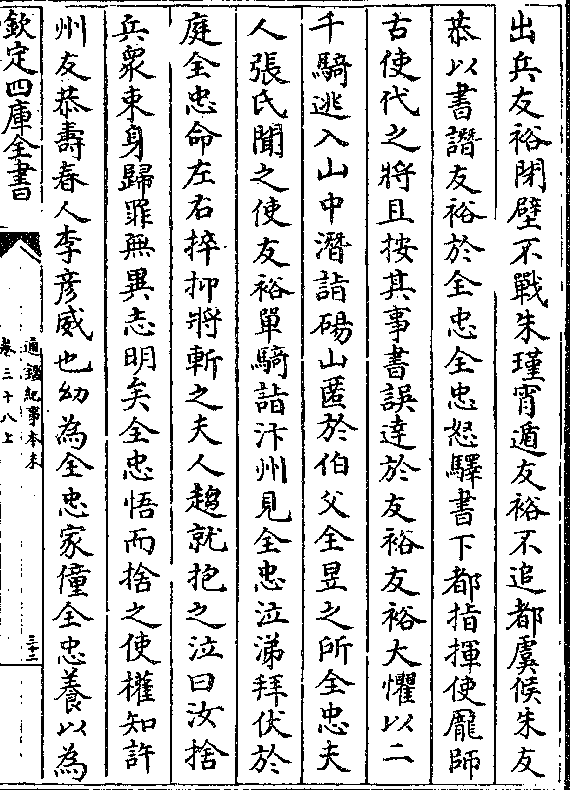 出兵友裕閉壁不戰朱瑾宵遁友裕不追都虞候朱友
恭以書譖友裕於全忠全忠怒驛書下都指揮使龐師
古使代之將且按其事書誤達於友裕友裕大懼以二
千騎逃入山中潛詣碭山匿於伯父全昱之所全忠夫
人張氏聞之使友裕單騎詣汴州見全忠泣涕拜伏於
庭全忠命左右捽抑將斬之夫人趨就抱之泣曰汝捨
兵衆束身歸罪無異志明矣全忠悟而捨之使權知許
州友恭壽春人李彦威也幼為全忠家僮全忠養以為
欽定四庫全書
通鑑紀事本末
卷三十八上
三十二